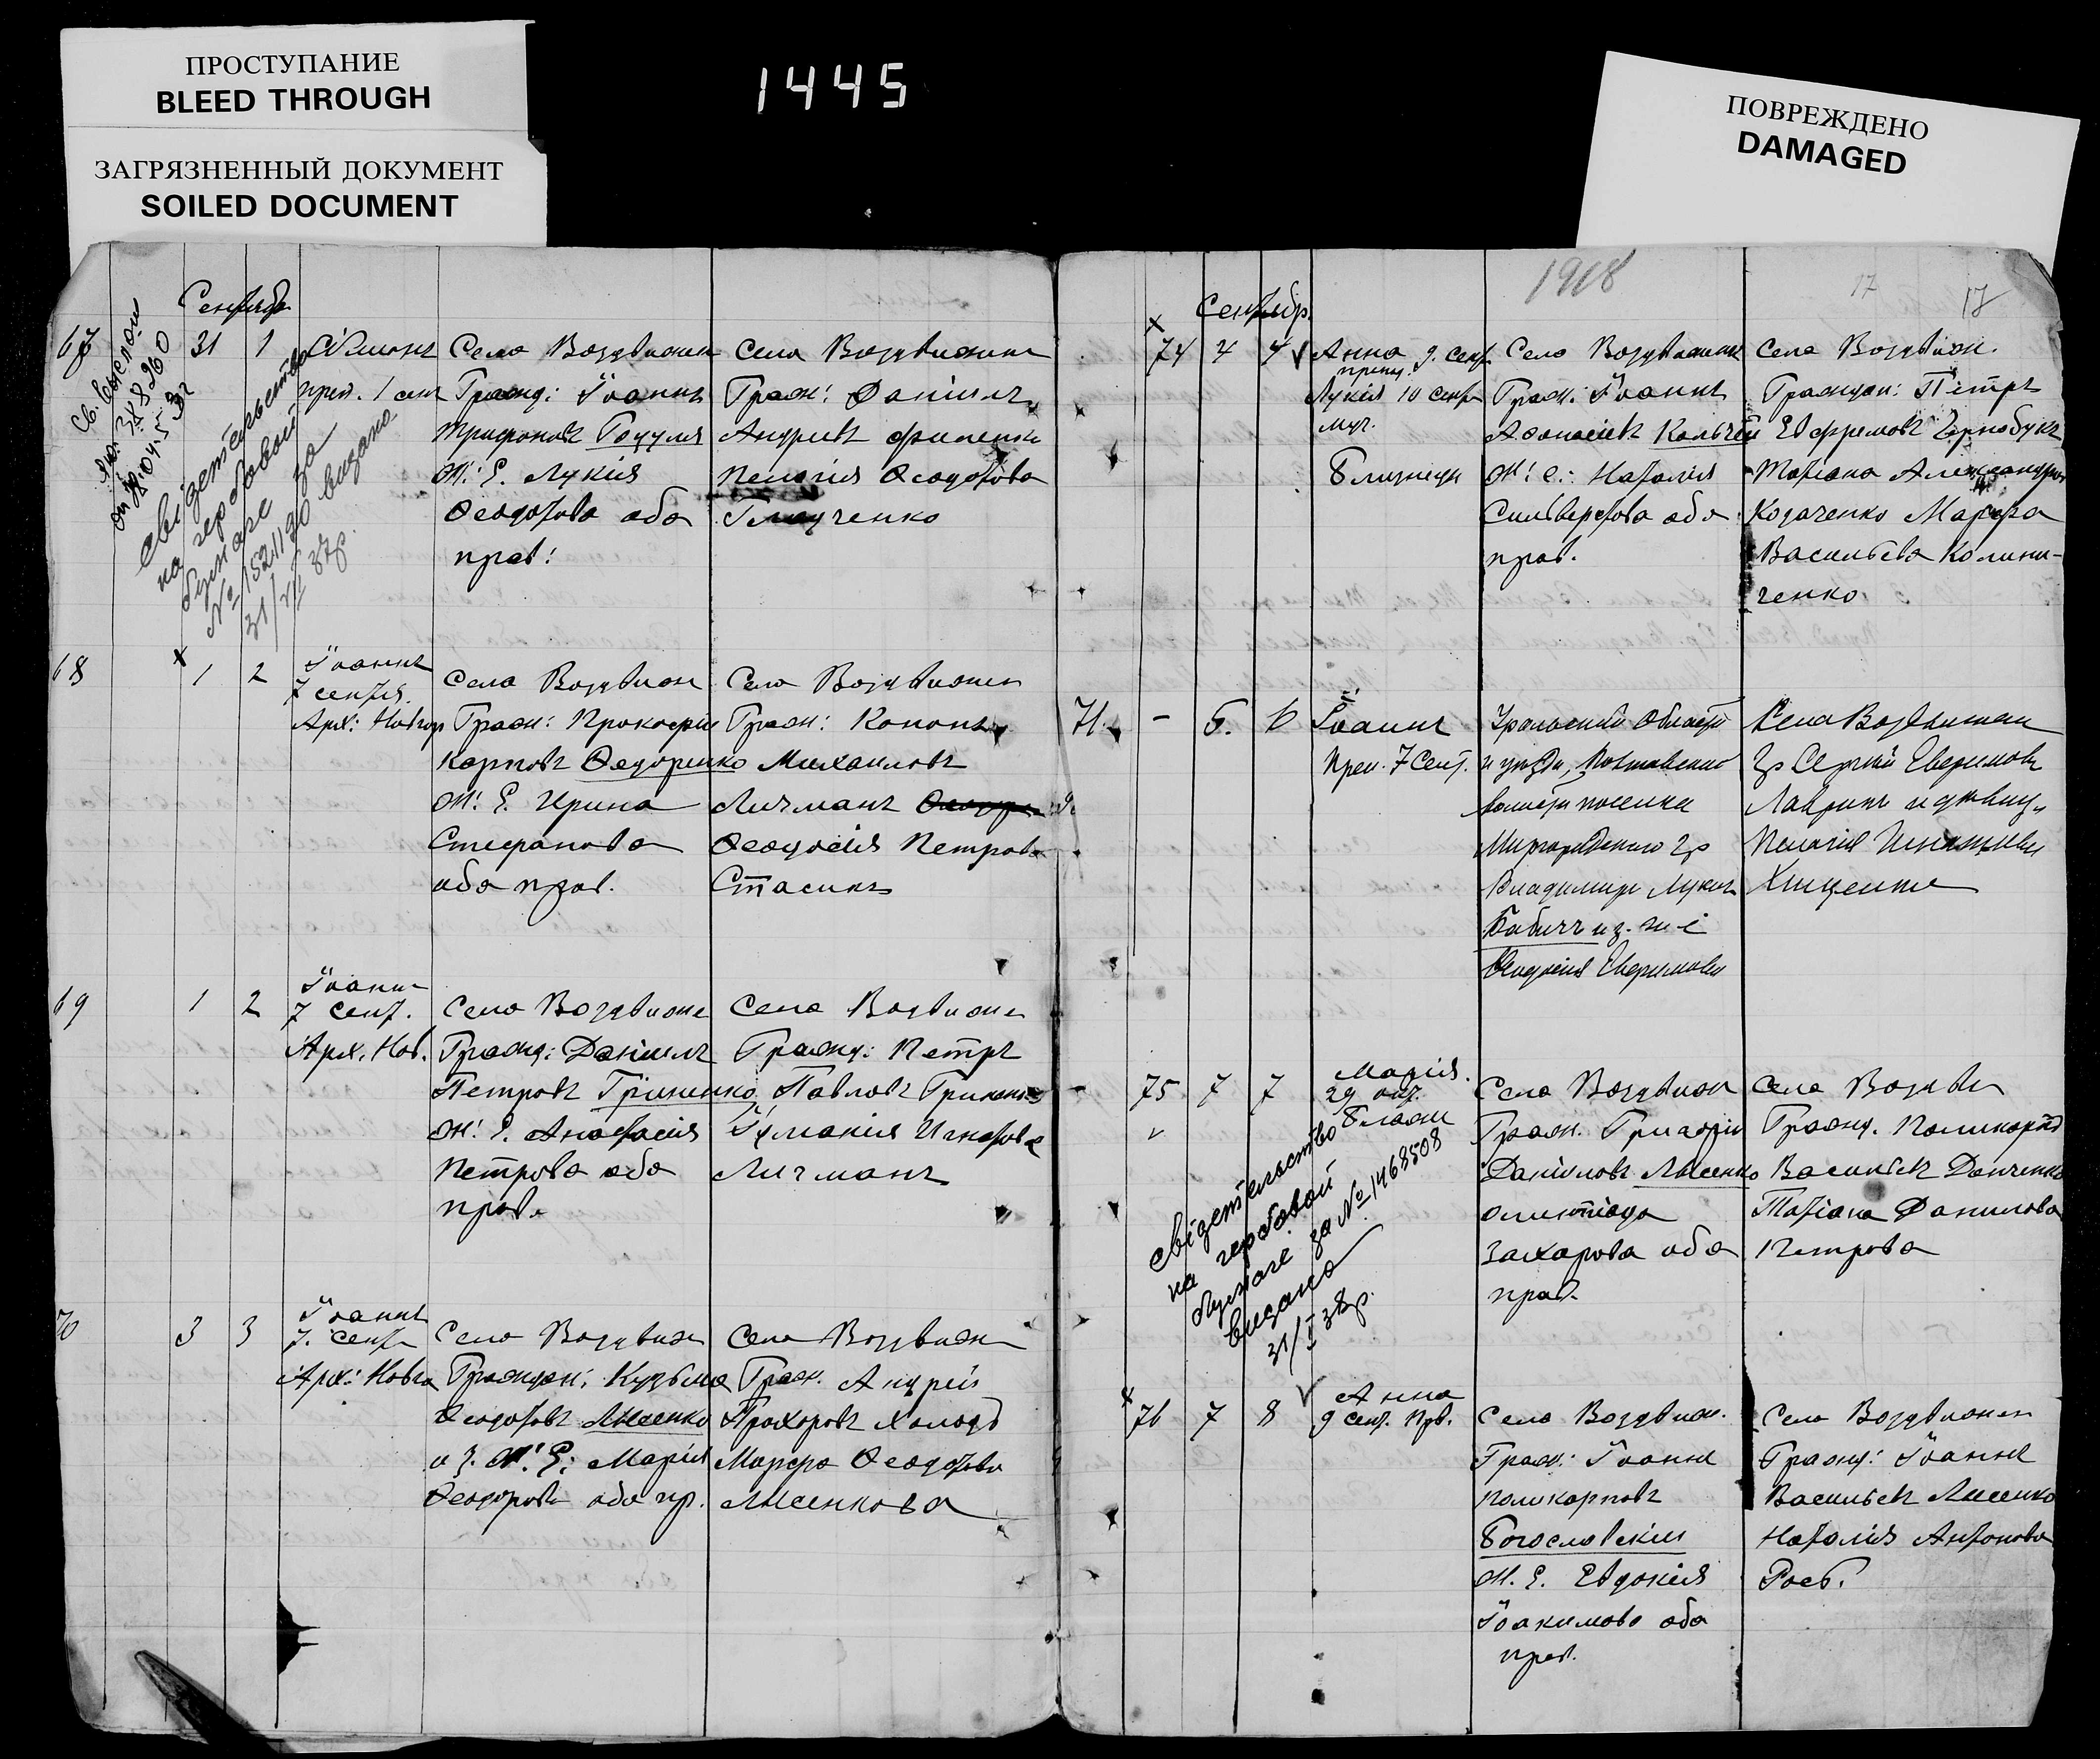 ПРОСТУПАНИЕ
BLEED THROUGH
ЗАГРЯЗНЕННЫЙ ДОКУМЕНТ
SOILED DOCUMENT
1445
ПОВРЕЖДЕНО
DAMAGED
Сентябр
67
31
1
Симонъ
преп. 1 сен
Села Воздвиженк
Гражд: Іоаннъ
Трифоновъ Гоцуля
Ж: Е. Лукія
Ѳеодотова оба
прав:
Села Воздвиженк
Граж: Даніилъ
Андріевъ Филенко
Пелагія Ѳеодотова
св. выслан
свідетельство
на гербовой
бумаге за
№ 152130 видано
31/VII 37р.
68
1
2
Іоаннъ
7 сентя.
Арх: Новгор
Села Воздвижен
Граж: Прокофій
Карповъ Ѳедоренко
Ж: Е. Ирина
Стефанова
оба прав.
Села Воздвижен
Граж: Кононъ
Михаиловъ
Личманъ
Ѳеодосія Петрова
Стасикъ
69
1
2
Іоаннъ
7 сент.
Арх. Нов.
Села Воздвиже
Гражд: Даніилъ
Петровъ Гриненко
Ж: Е. Анастасія
Петрова оба
прав.
Села Воздвиже
Гражд: Петръ
Павловъ Гриненко
Іуліанія Игнатова
Личманъ
70
3
3
Іоаннъ
7. сент
Арх: Новго
Села Воздвиж
Граждан: Кузьма
Ѳеодотовъ Лисенко
и З. Ж: Е: Марія
Ѳеодорова оба пр.
Села Воздвижен
Граж. Андрей
Прохоровъ Холодъ
Марфа Ѳеодотова
Лисенкова
Сентябр.
1918
17
17
74
4
4
Анна 9. сент
Лукія 10 сентр
муч.
Близнецы
Села Воздвиженк
Граж: Іоаннъ
Аѳонасіевъ
Ж: Е: Наталія
Сильвестрова оба
прав.
Села Воздвиж.
Граждан: Петръ
Евфремовъ Чорнобукъ
Татіана Александрова
Козаченко Марфа
Васильева Колини-
ченко
71.
-
5.
6
Іоаннъ
Преп. 7 Сент.
Уральской Области
и уезда, Полтавской
волости поселка
Миргородскаго гр
Владимиръ Лукинъ
Бабичъ из. ж. е
Ѳеодосія
Села Воздвижен
гр Сергій
75
7
7
Марія.
29 окт.
Села Воздвижен
Граж. Григорій
Даніиловъ Лисенко
Олимпіада
Захарова оба
прав.
Села Воздви
Гражд. Поликарпъ
Васильевъ Донченко
Татіана Данилова
Петрова
свідетельство
на гербовой
бумаге за № 1468508
видано
31/I 38р.
76
7
8
Анна
9 сент. Прв.
Села Воздвиж.
Граж: Іоаннъ
Поликарповъ
Богословскій
Ж. Е. Евдокія
Іоакимова оба
прав.
Села Воздвижен
Гражд: Іоаннъ
Васильевъ Лисенко
Наталія Антонова